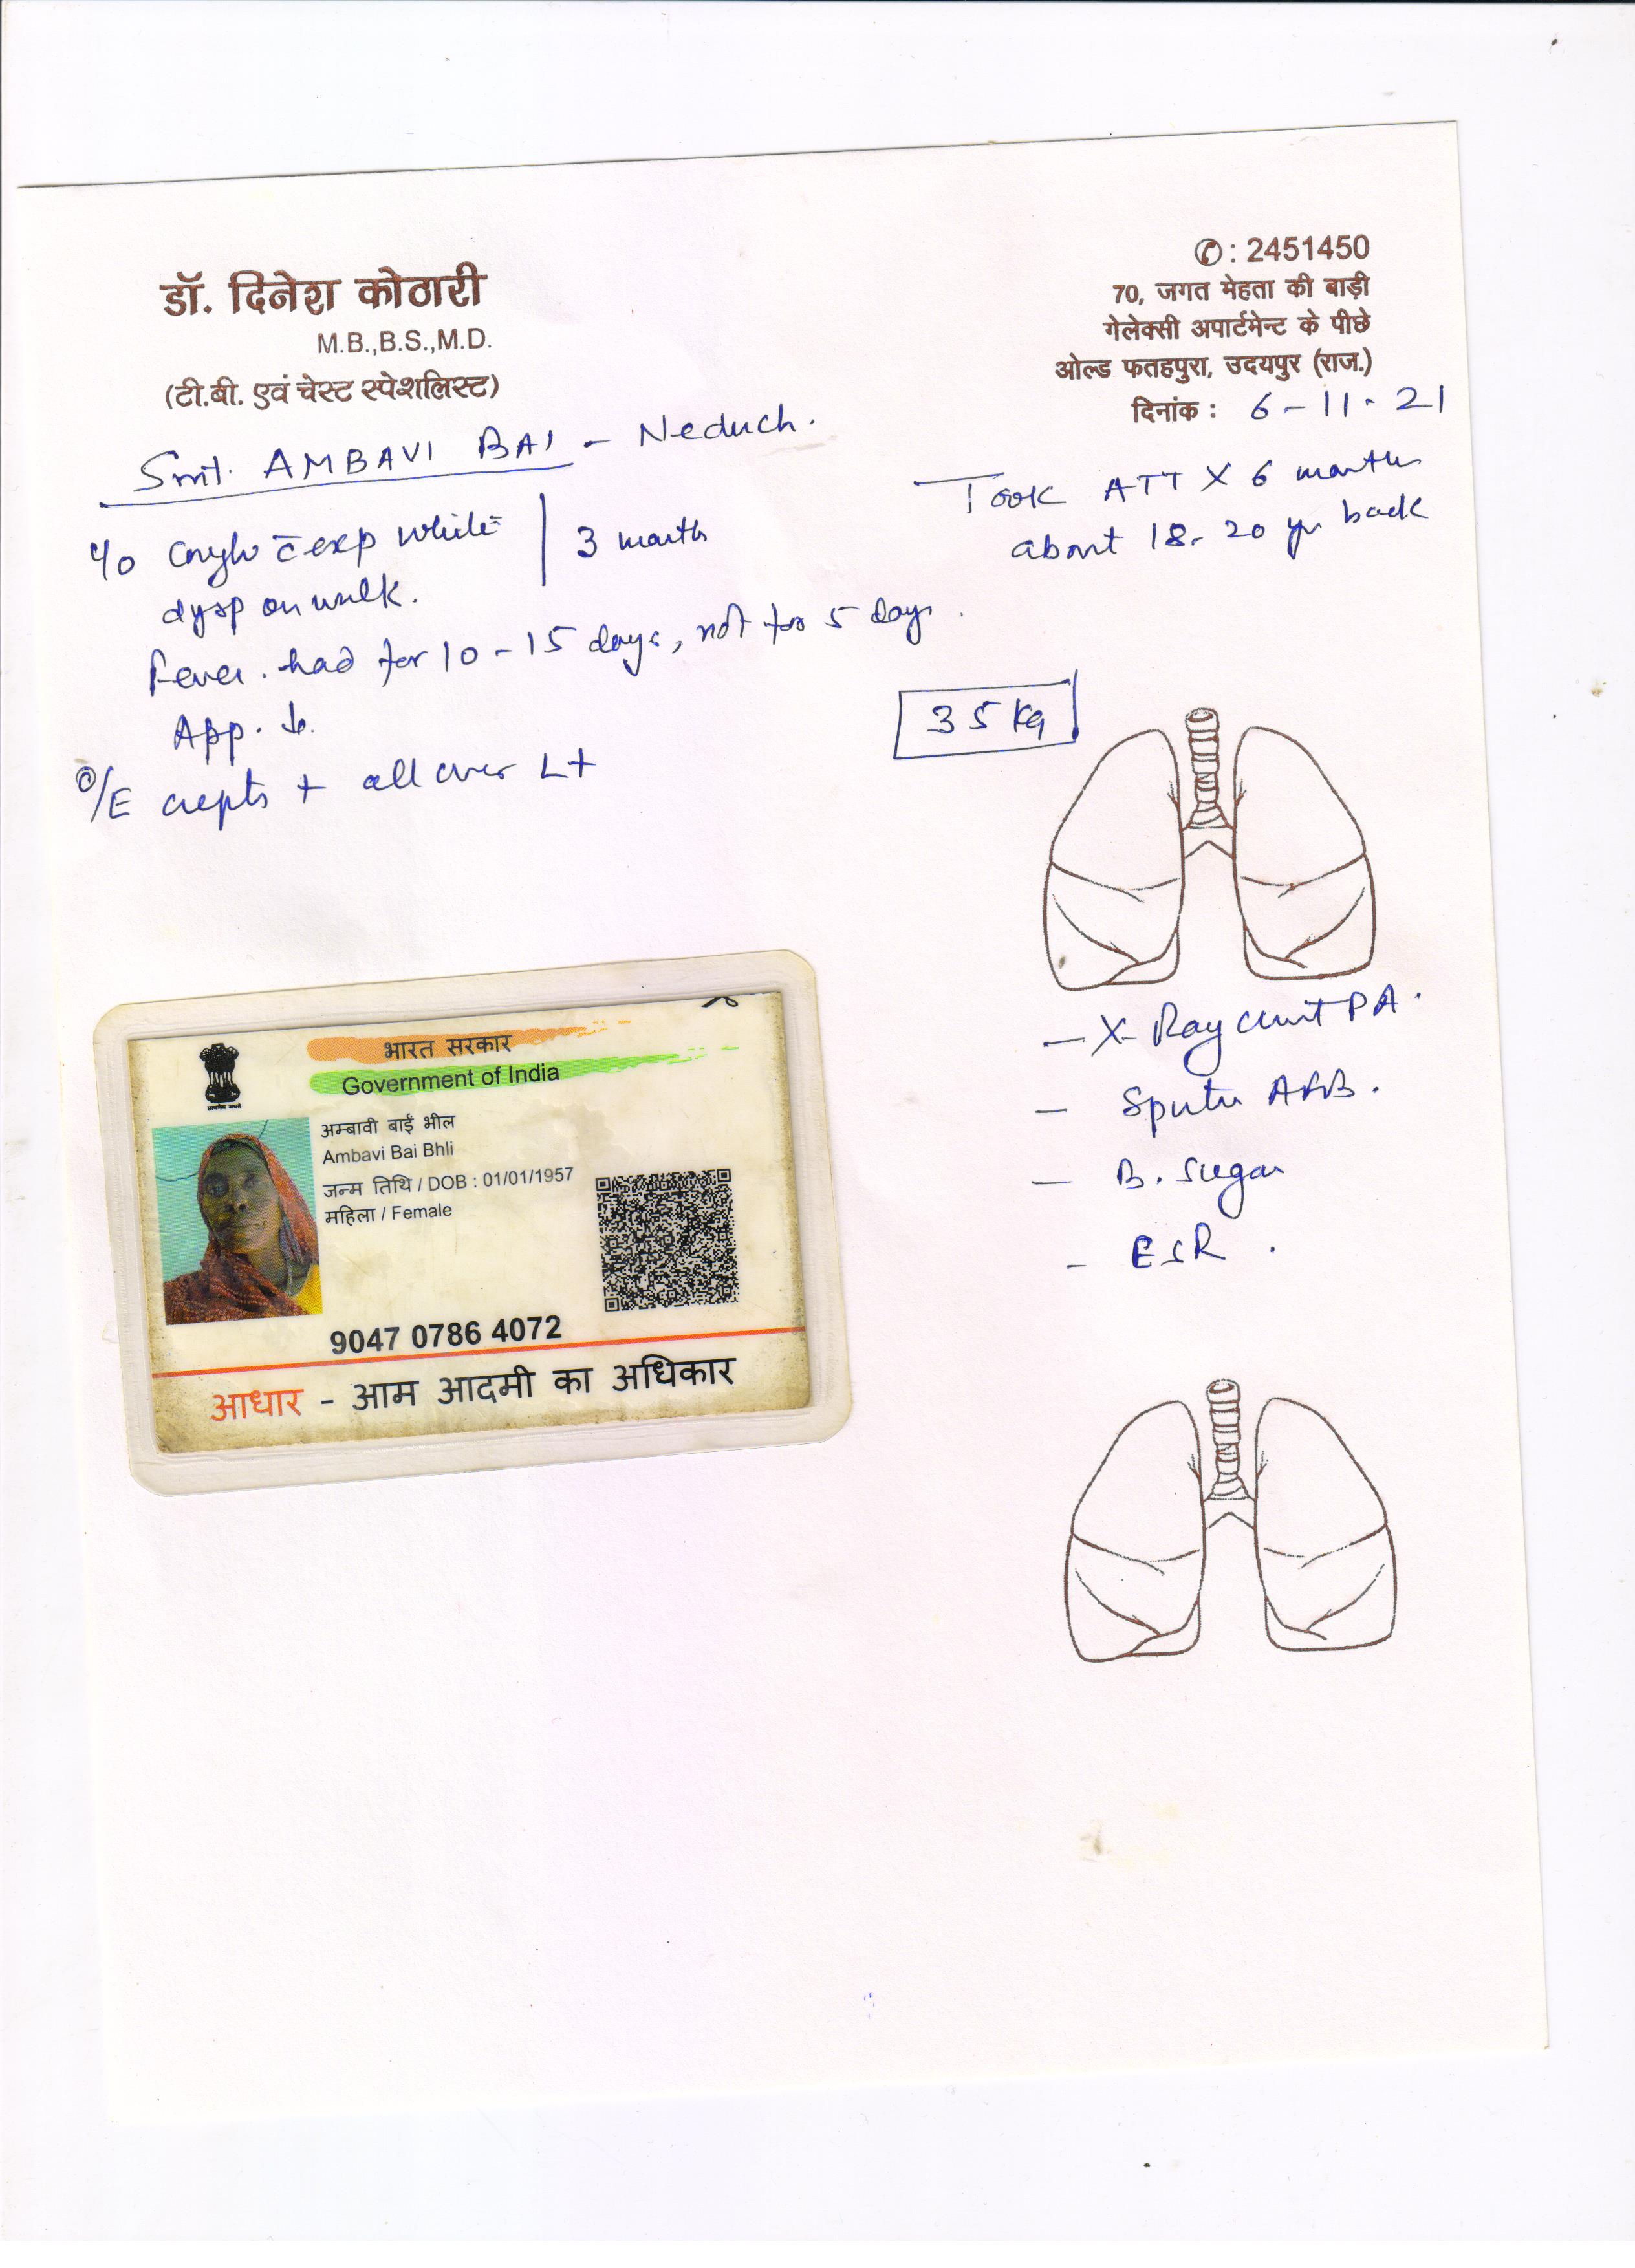 डॉ. दिनेश कोठारी
M.B.,B.S.,M.D.
(टी.बी. एवं चेस्ट स्पेशलिस्ट)
✆ : 2451450
70, जगत मेहता की बाड़ी
गेलेक्सी अपार्टमेन्ट के पीछे
ओल्ड फतहपुरा, उदयपुर (राज.)
दिनांक : 6-11-21
Smt. AMBAVI BAI - Neduch.
Took ATT X 6 months
about 18-20 yr back
c/o cough c̄ exp white
dysp on walk. | 3 month
Fever. had for 10-15 days, not for 5 days.
App. ↓.
35 Kg
O/E crepts + all over Lt
- X-Ray chest PA.
- Sputum AFB.
- B. Sugar
- ESR.
भारत सरकार
Government of India
अम्बावी बाई भील
Ambavi Bai Bhli
जन्म तिथि / DOB : 01/01/1957
महिला / Female
9047 0786 4072
आधार - आम आदमी का अधिकार